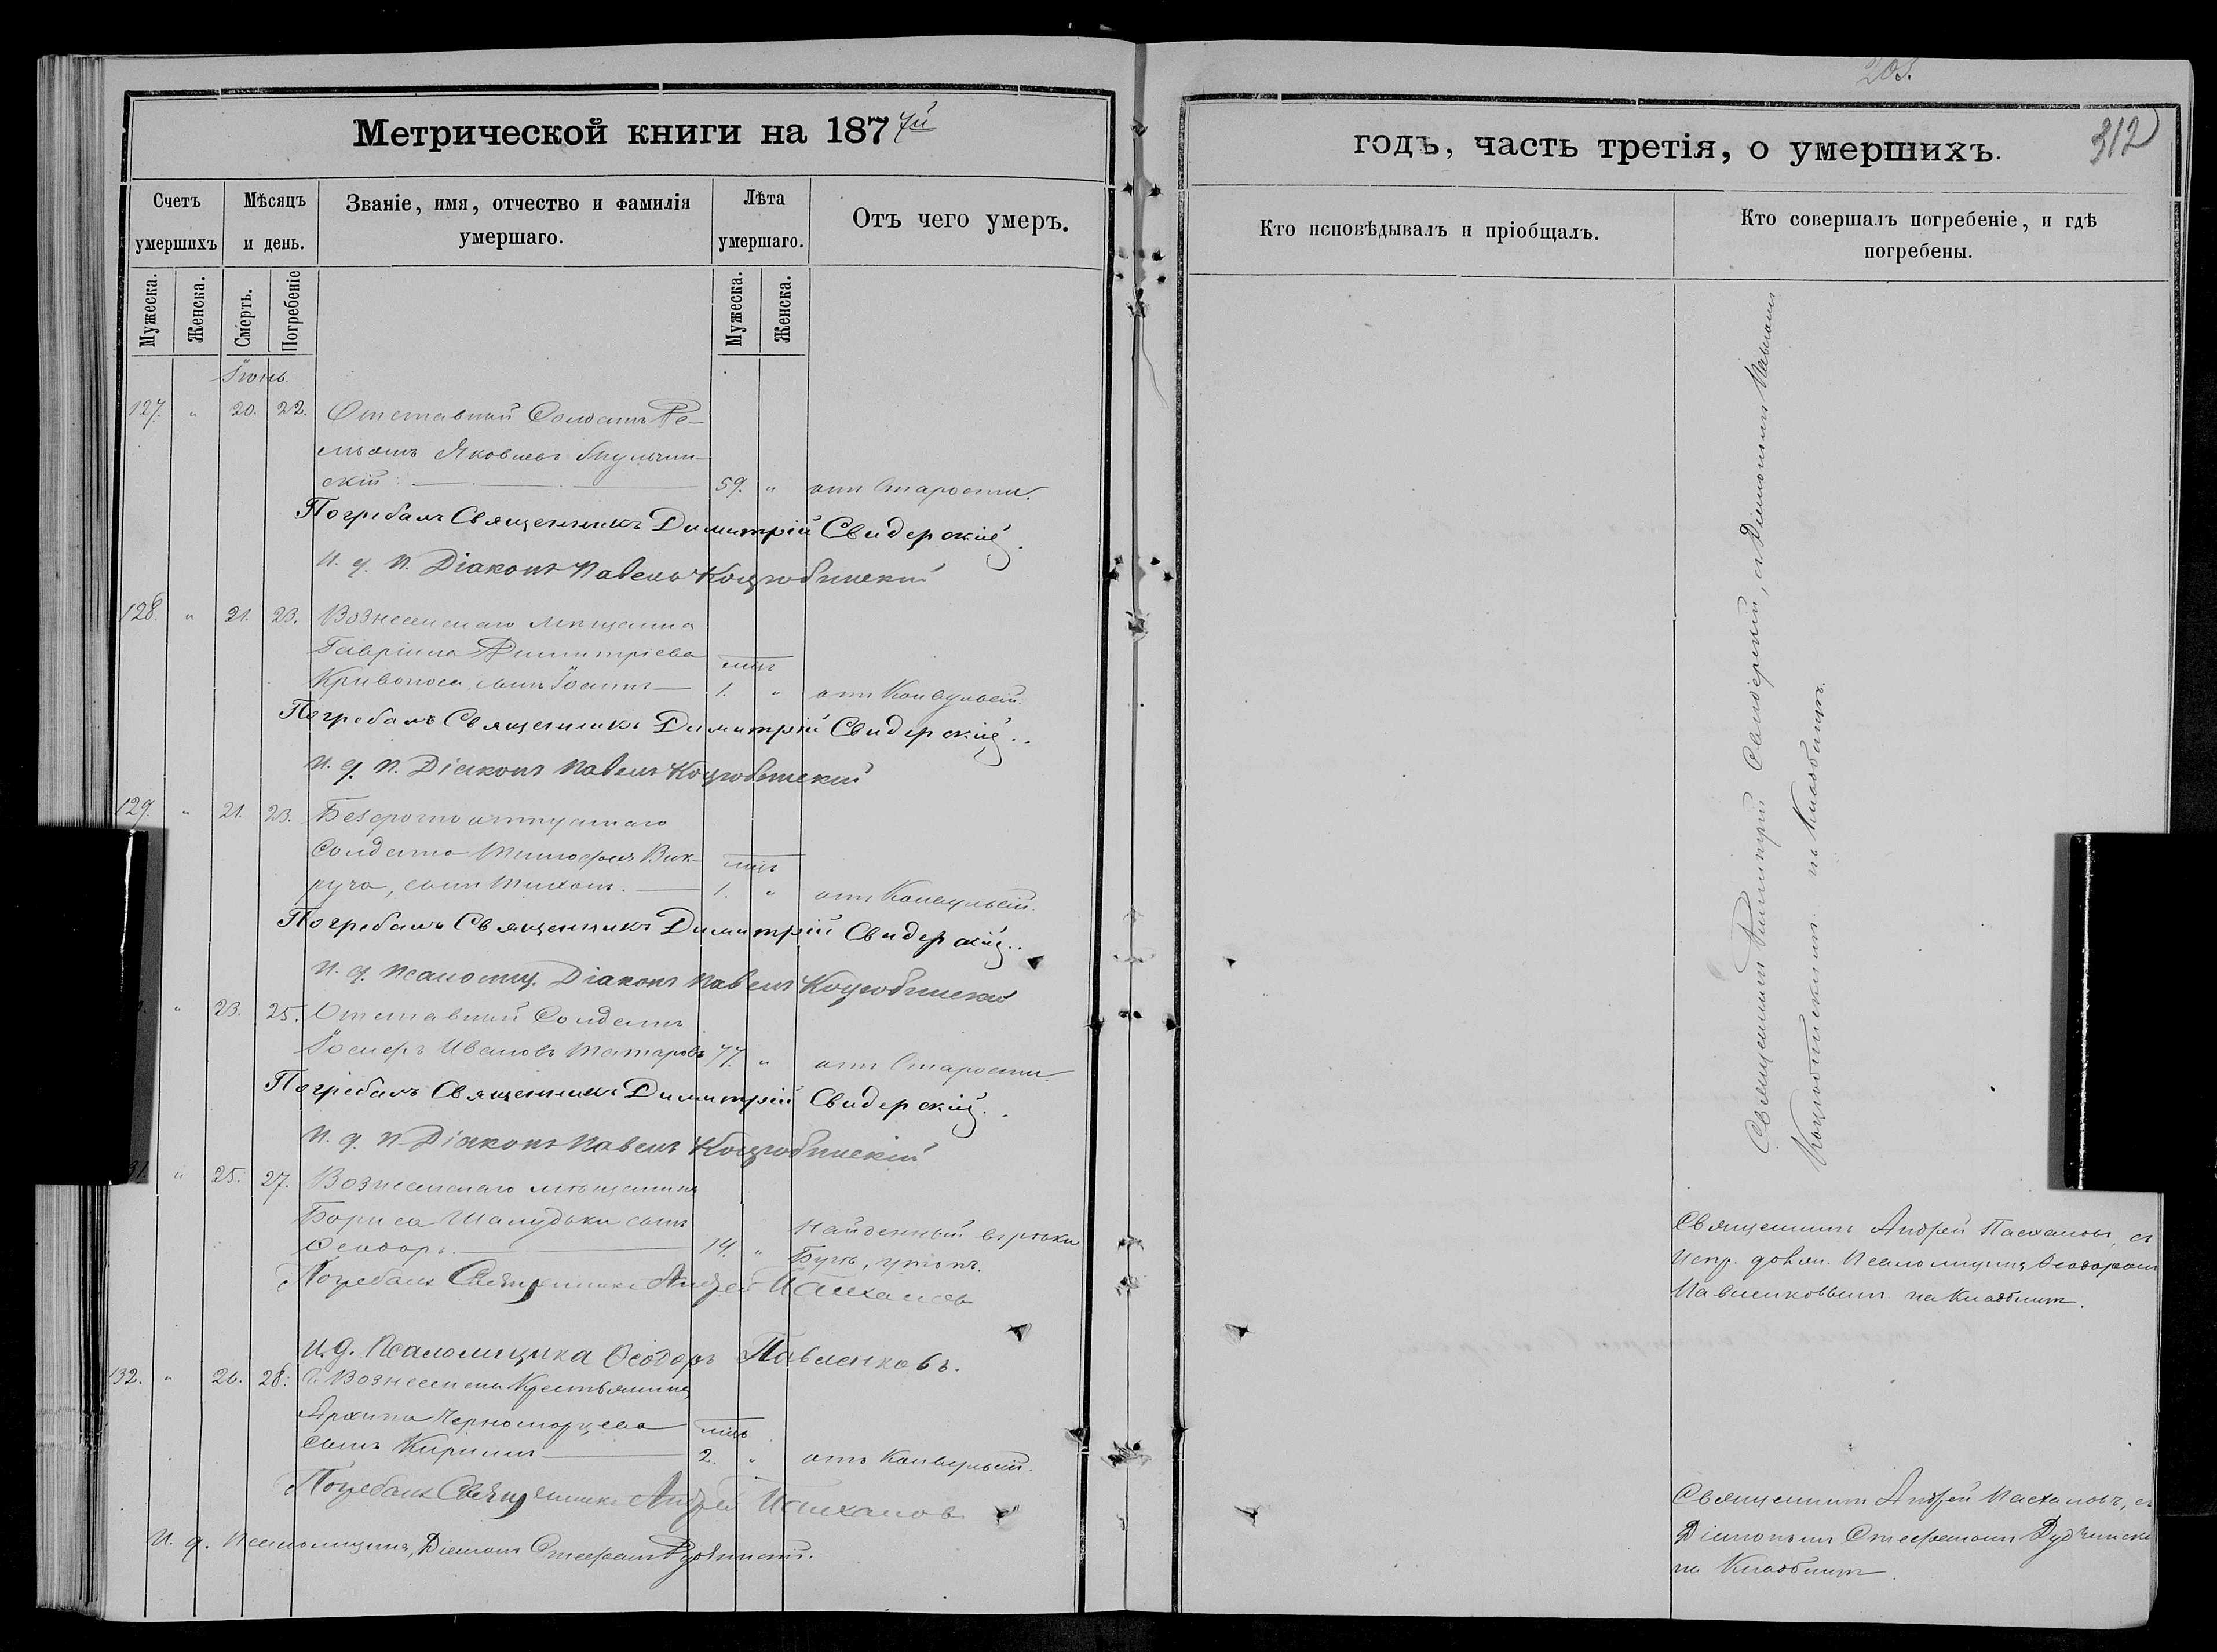 203.
312
Метрической книги на 1877й
годъ, часть третія, о умершихъ.
Счетъ умершихъ
Мѣсяцъ и день.
Званіе, имя, отчество и фамилія умершаго.
Лѣта умершаго.
Отъ чего умеръ.
Кто исповѣдывалъ и пріобщалъ.
Кто совершалъ погребеніе, и гдѣ погребены.
Мужеска.
Женска.
Смерть.
Погребеніе
Мужеска.
Женска.
Іюнь.
127. " 20. 22. Отставный Солдатъ
Яковлевъ
скій 59. " отъ Старости.
Погребалъ Священникъ Димитрій Свидерскій.
И. д. П. Діаконъ Павелъ Коцюбинскій
128. " 21. 23. Вознесенскаго мѣщанина
Гавріила Димитріева лѣтъ
Кривоноса сынъ Іоаннъ 1. " отъ Конвульсій.
Погребалъ Священникъ Димитрій Свидерскій.
И. д. П. Діаконъ Павелъ Коцюбинскій
129. " 21. 23. Безсрочноотпускнаго
Солдата Тимофея Вик- лѣтъ
руча, сынъ Тихонъ. 1. " отъ Конвульсій.
Погребалъ Священникъ Димитрій Свидерскій.
И. д. Псаломщ. Діаконъ Павелъ Коцюбинскій
" 23. 25. Отставный Солдатъ
Іосифъ Ивановъ Татаровъ 77. " отъ Старости.
Погребалъ Священникъ Димитрій Свидерскій.
И. д. П. Діаконъ Павелъ Коцюбинскій
" 25. 27. Вознесенскаго мѣщанина
Бориса Шалудьки сынъ Найденный въ рѣкѣ
Ѳеодоръ. 14. " Бугъ, утопъ.
Погребалъ Священникъ Андрей Пасхаловъ
И. д. Псаломщика Ѳеодоръ Павленковъ.
132. " 26. 28. Г. Вознесенска Крестьянина
Архипа Черноморцева лѣтъ
сынъ Кириллъ 2. " отъ Конвульсій.
Погребалъ Священникъ Андрей Пасхаловъ
И. д. Псаломщика, Діаконъ Стефанъ
Священникъ Димитрій Свидерскій, съ Діакономъ Павломъ
Коцюбинскимъ на Кладбищѣ.
Священникъ Андрей Пасхаловъ, съ
Испр. должн. Псаломщика Ѳеодоромъ
Павленковымъ на Кладбищѣ.
Священникъ Андрей Пасхаловъ, съ
Діакономъ Стефаномъ
на Кладбищѣ.